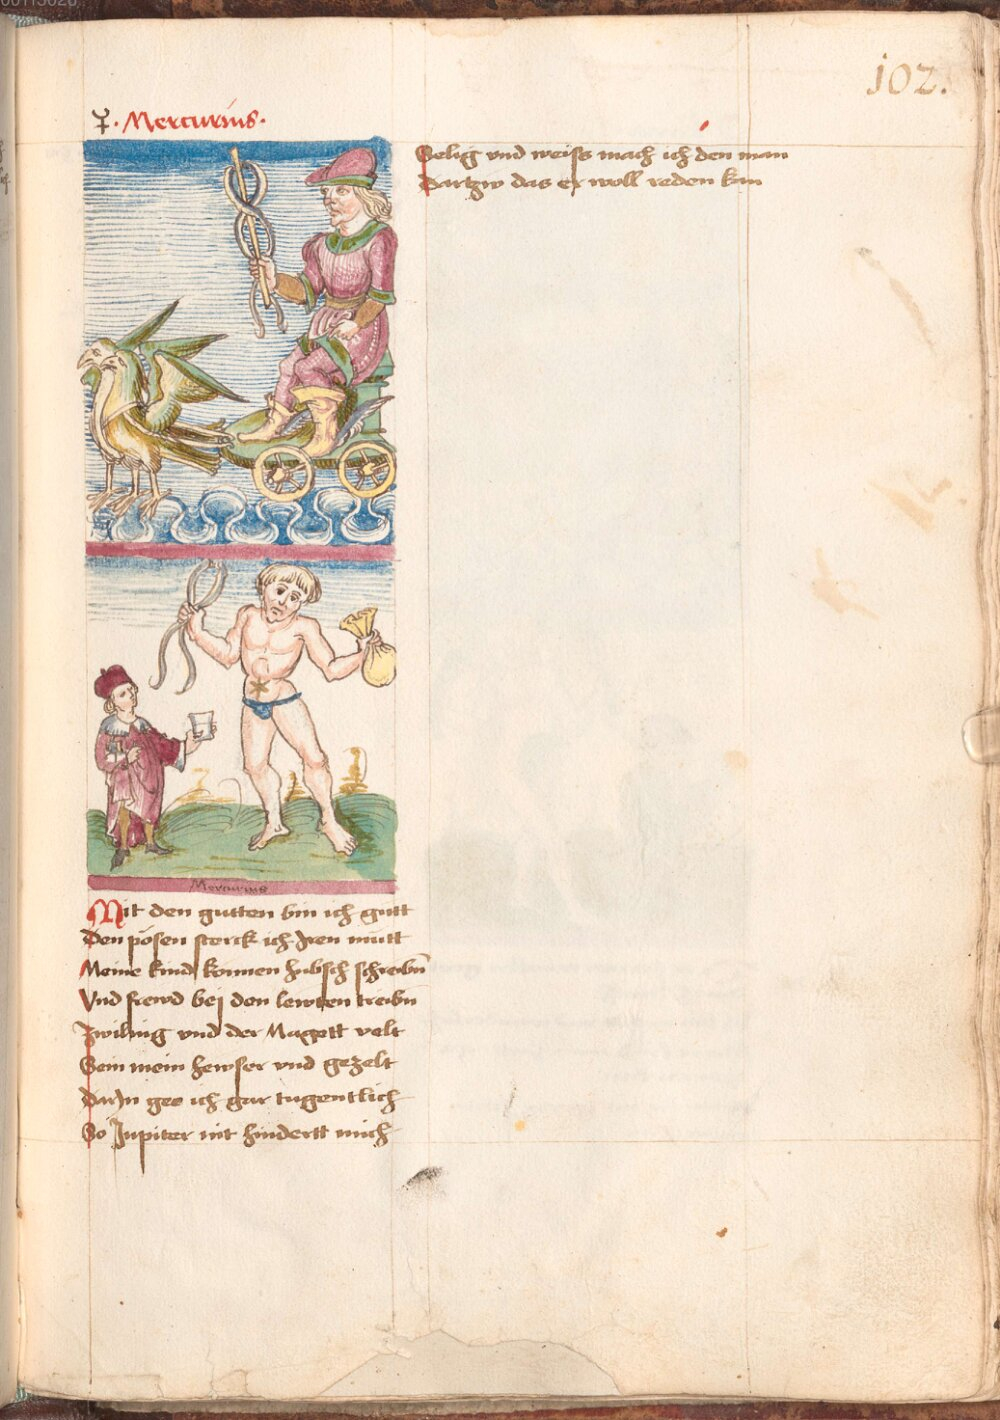 102.
☿. Mercurius.
Mercurius
Mit den gutten bin ich gutt
Den pösen sterck ich Iren mutt
Meine kind konnen hubsch schreibn
Vnd frewd bej den lewten treibn
Zwiling vnd der Magett velt
Sein mein hewser vnd gezelt
DarIn gee ich gar tugentlich
So Jupiter nit hindertt mich
Selig vnd weiss mach ich den man
Dartzw das er woll reden kan